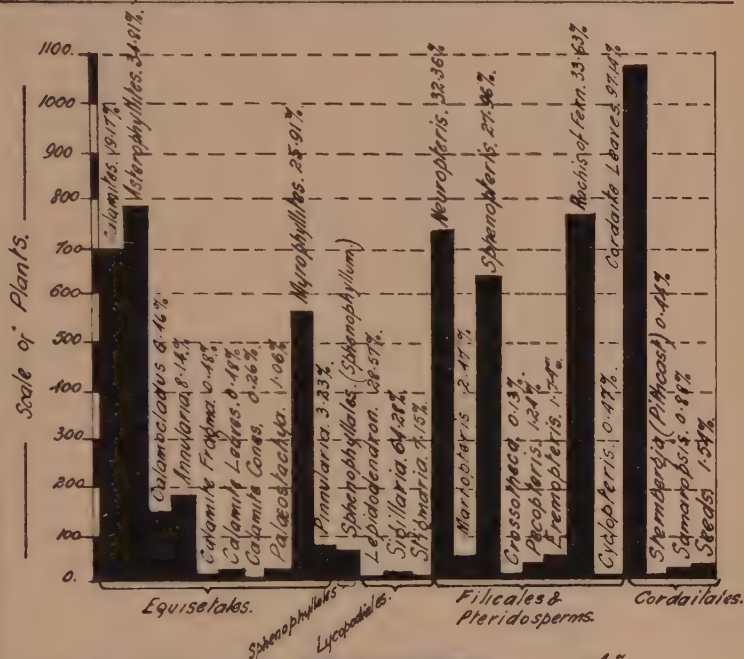 Scale of Plants.
1100.
1000
900
800
700
600
500
400
300
200
100
0.
Calamites. 19.17%
Asterophyllites. 34.81%
Calamocladus 6.16%
Annularia. 8.14%
Calamite Fragma. 0.48%
Calamite Leaves. 0.48%
Calamite Cones. 0.26%
Palæostachya. 1.06%
Myrophyllites. 25.91%
Pinnularia. 3.23%
Sphenophyllales. (Sphenophyllum)
Lepidodendron. 28.57%
Sigillaria. 64.28%
Stigmaria. 7.15%
Neuropteris. 32.36%
Mariopteris. 2.47%
Sphenopteris. 27.96%
Crossotheca. 0.13%
Pecopteris. 1.24%
Eremopteris. 1.74%
Rachis of Fern. 33.63%
Cyclopteris. 0.47%
Cordaite Leaves. 97.14%
Sternbergia (Pithcast) 0.44%
Samaropsis. 0.88%
Seeds. 1.54%
Equisetales.
Sphenophyllales
Lycopodiales.
Filicales &
Pteridosperms.
Cordaitales.